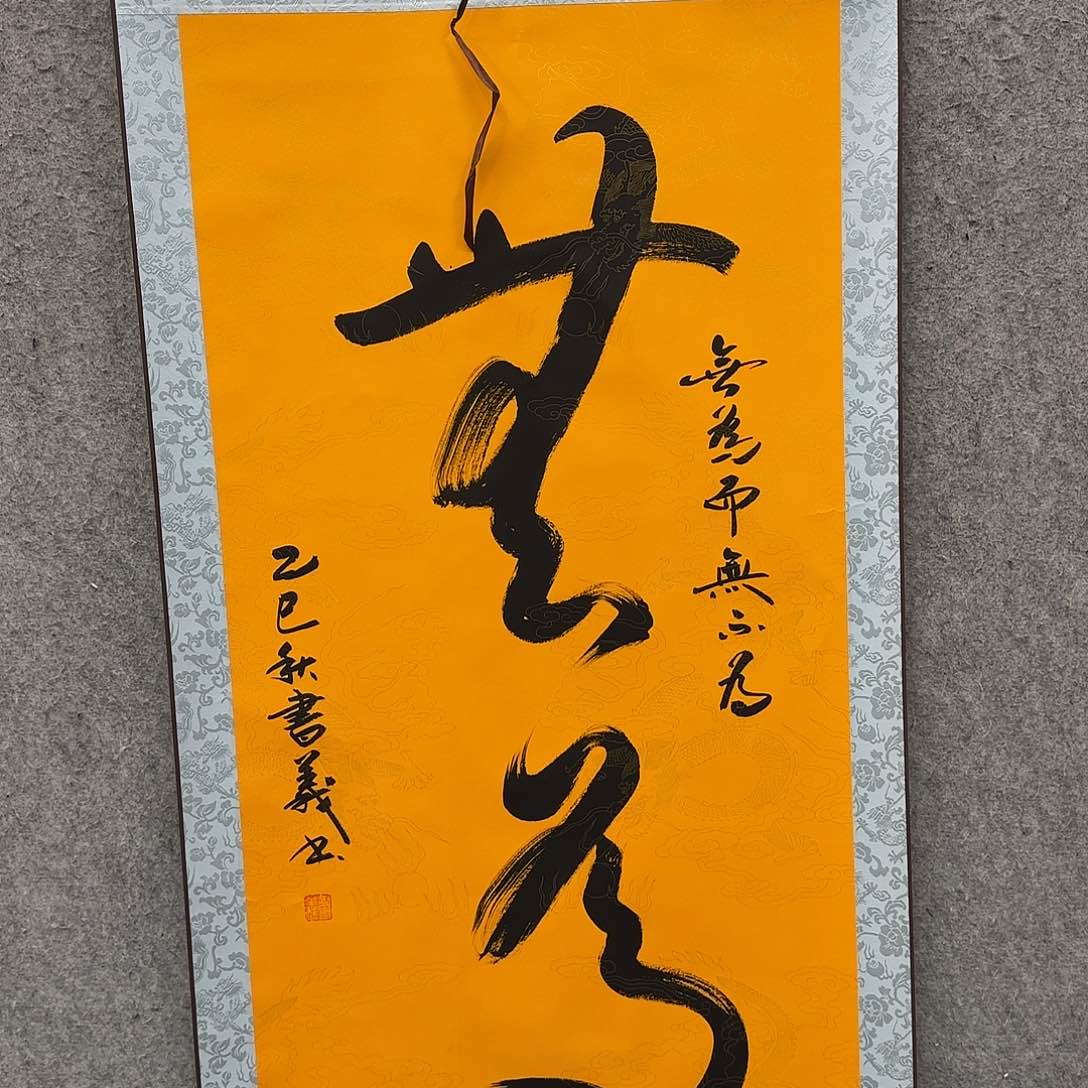 無為
無為而無不為
乙巳秋書義书